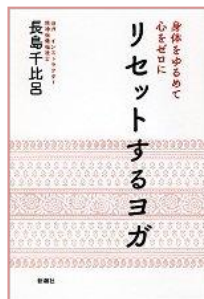 身体をゆるめて
心をゼロに
リセットするヨガ
ヨガ・インストラクター
精神保健福祉士
長島千比呂
新潮社